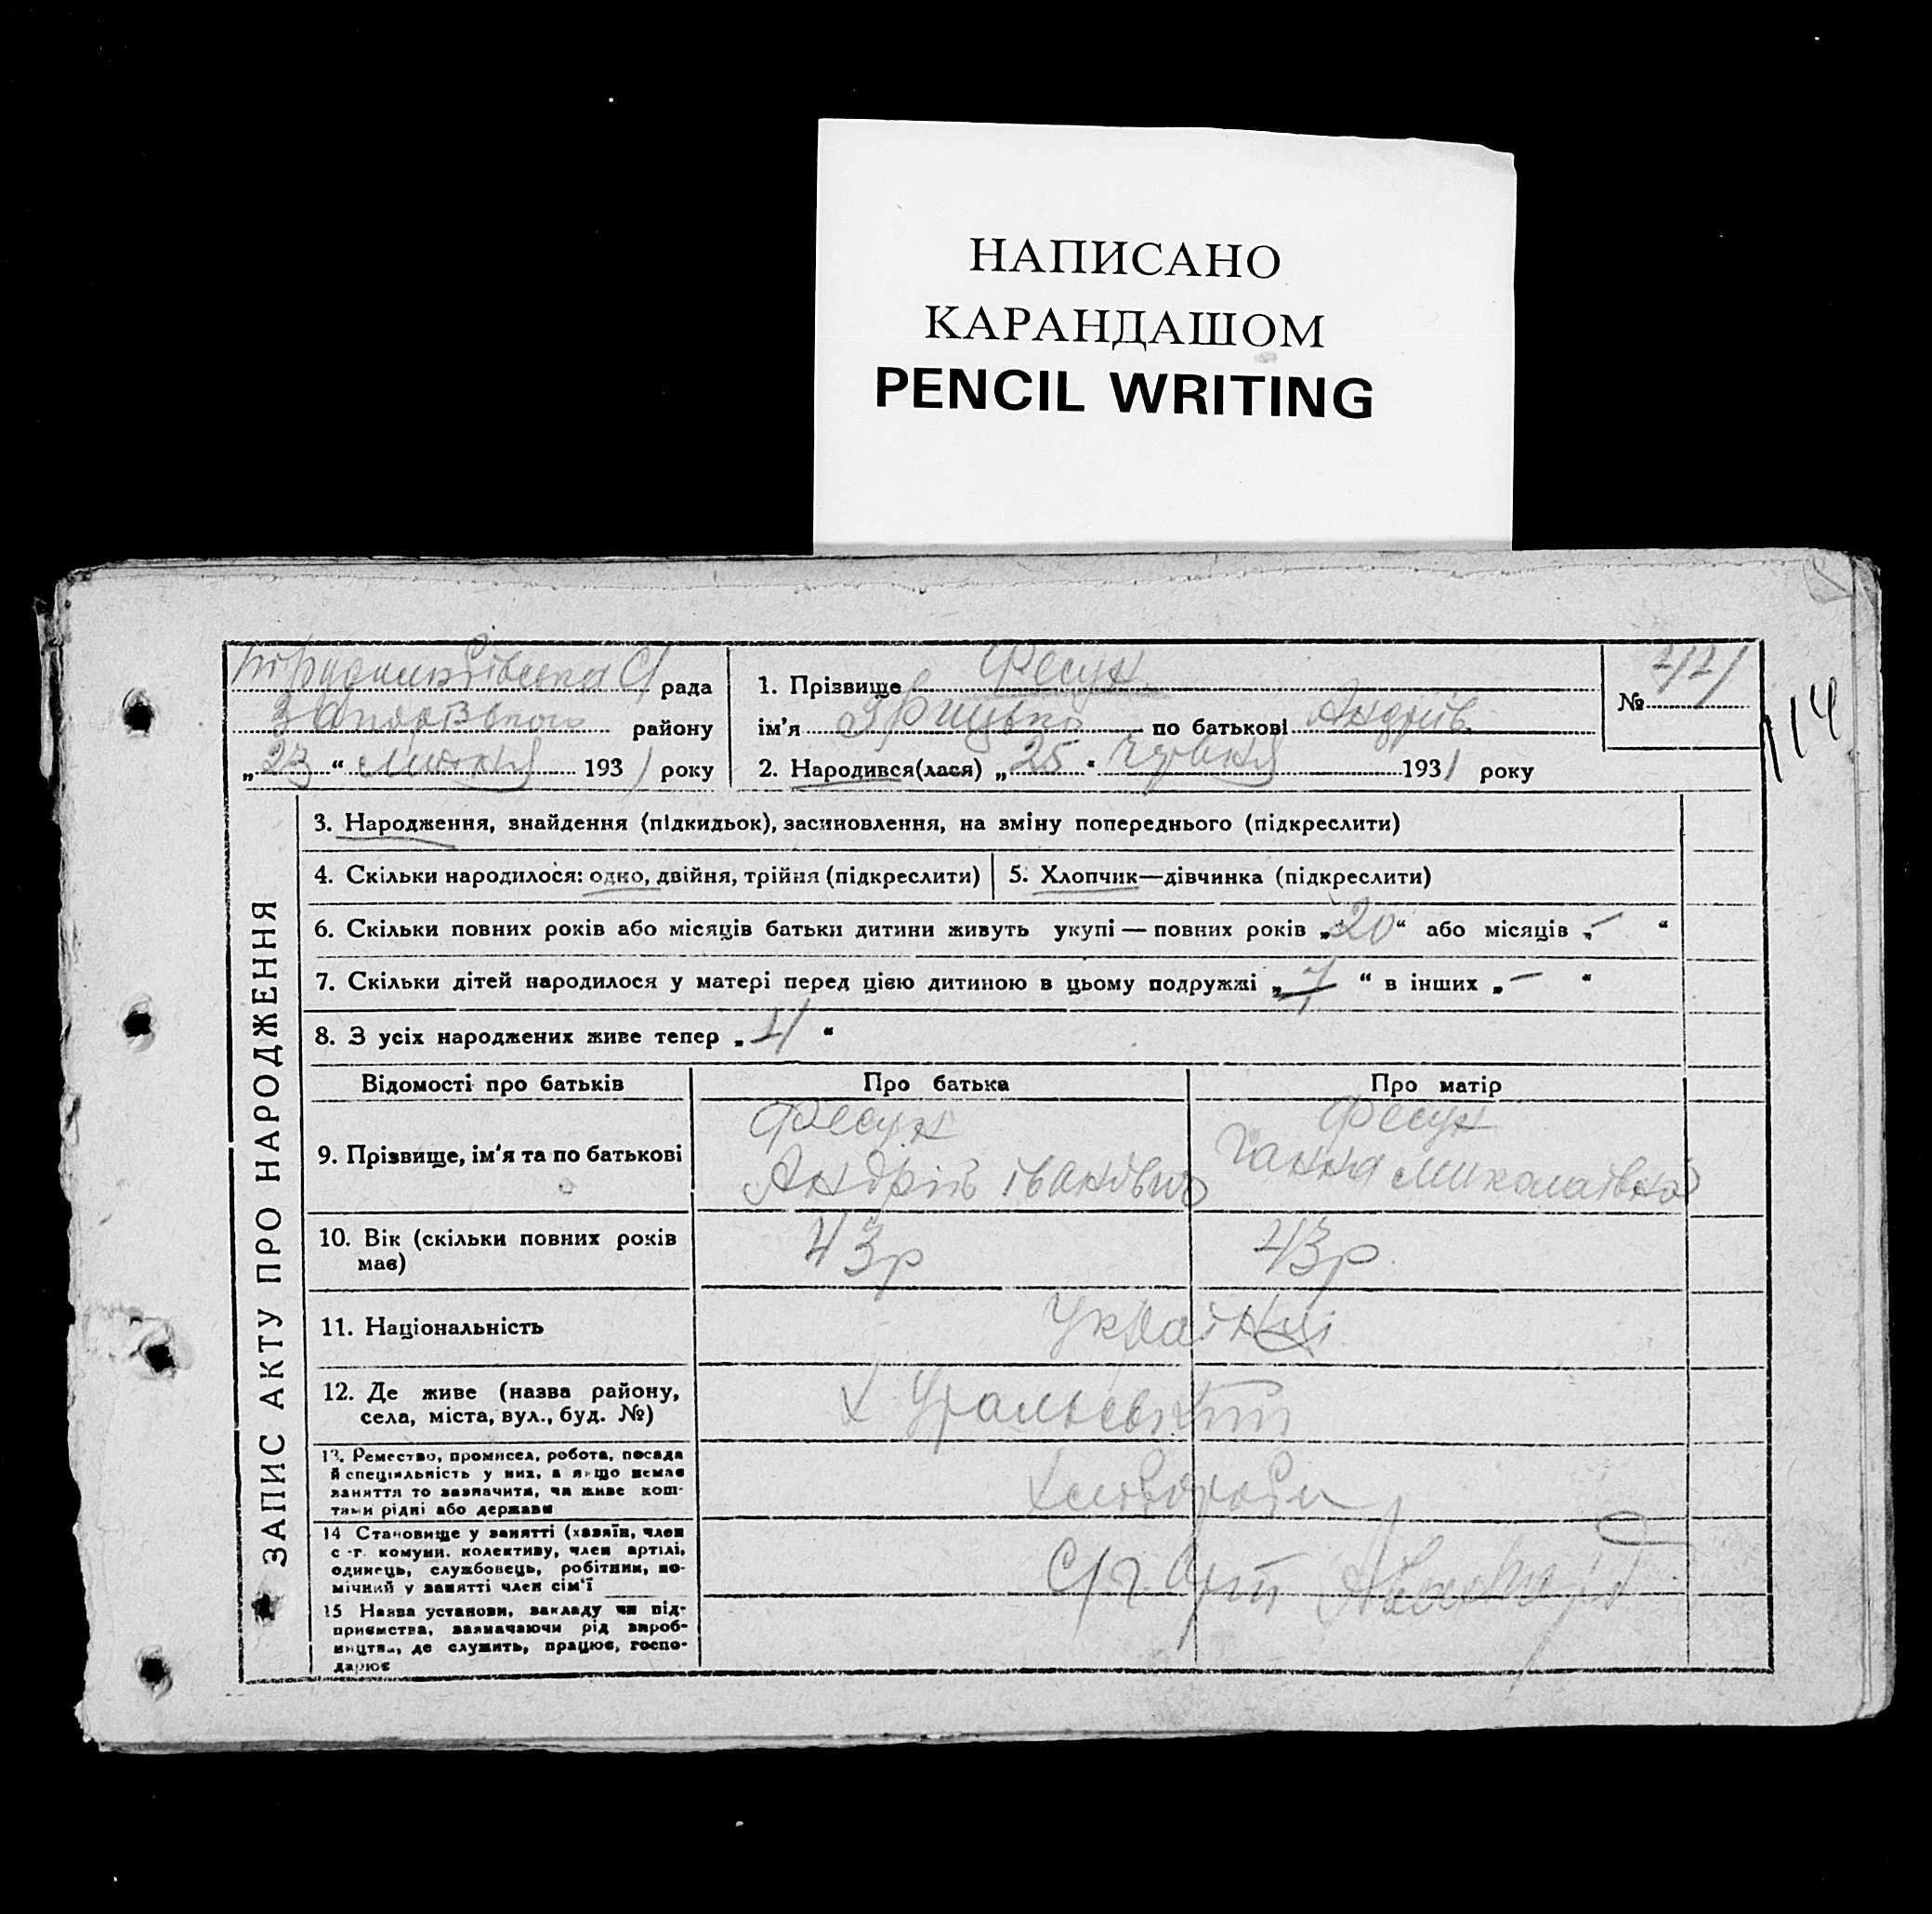 НАПИСАНО
КАРАНДАШОМ
PENCIL WRITING
рада
району
„23“ 1931 року
1. Прізвище Фесун
ім'я Грицько по батькові Андріїв.
2. Народився(лася) „25“ червня 1931 року
№ 44
114
ЗАПИС АКТУ ПРО НАРОДЖЕННЯ
3. Народження, знайдення (підкидьок), засиновлення, на зміну попереднього (підкреслити)
4. Скільки народилося: одно, двійня, трійня (підкреслити)
5. Хлопчик—дівчинка (підкреслити)
6. Скільки повних років або місяців батьки дитини живуть укупі — повних років „20“ або місяців „—“
7. Скільки дітей народилося у матері перед цією дитиною в цьому подружжі „7“ в інших „—“
8. З усіх народжених живе тепер „4“
Відомості про батьків
Про батька
Про матір
9. Прізвище, ім'я та по батькові
Фесун
Андрій Іванович
Фесун
Ганна Миколаївна
10. Вік (скільки повних років
має)
43р
43р.
11. Національність
Українці
12. Де живе (назва району,
села, міста, вул., буд. №)
13. Ремество, промисел, робота, посада
й спеціяльність у них, а якщо немає
заняття то зазначити, чи живе кош-
тами рідні або держави
Хлібороби
14 Становище у занятті (хазяїн, член
с.-г. комуни, колективу, член артілі,
одинець, службовець, робітник, по-
мічний у занятті член сім'ї
С/г
15 Назва установи, закладу чи під-
приємства, зазначаючи рід вироб-
ництва, де служить, працює, госпо-
дарює